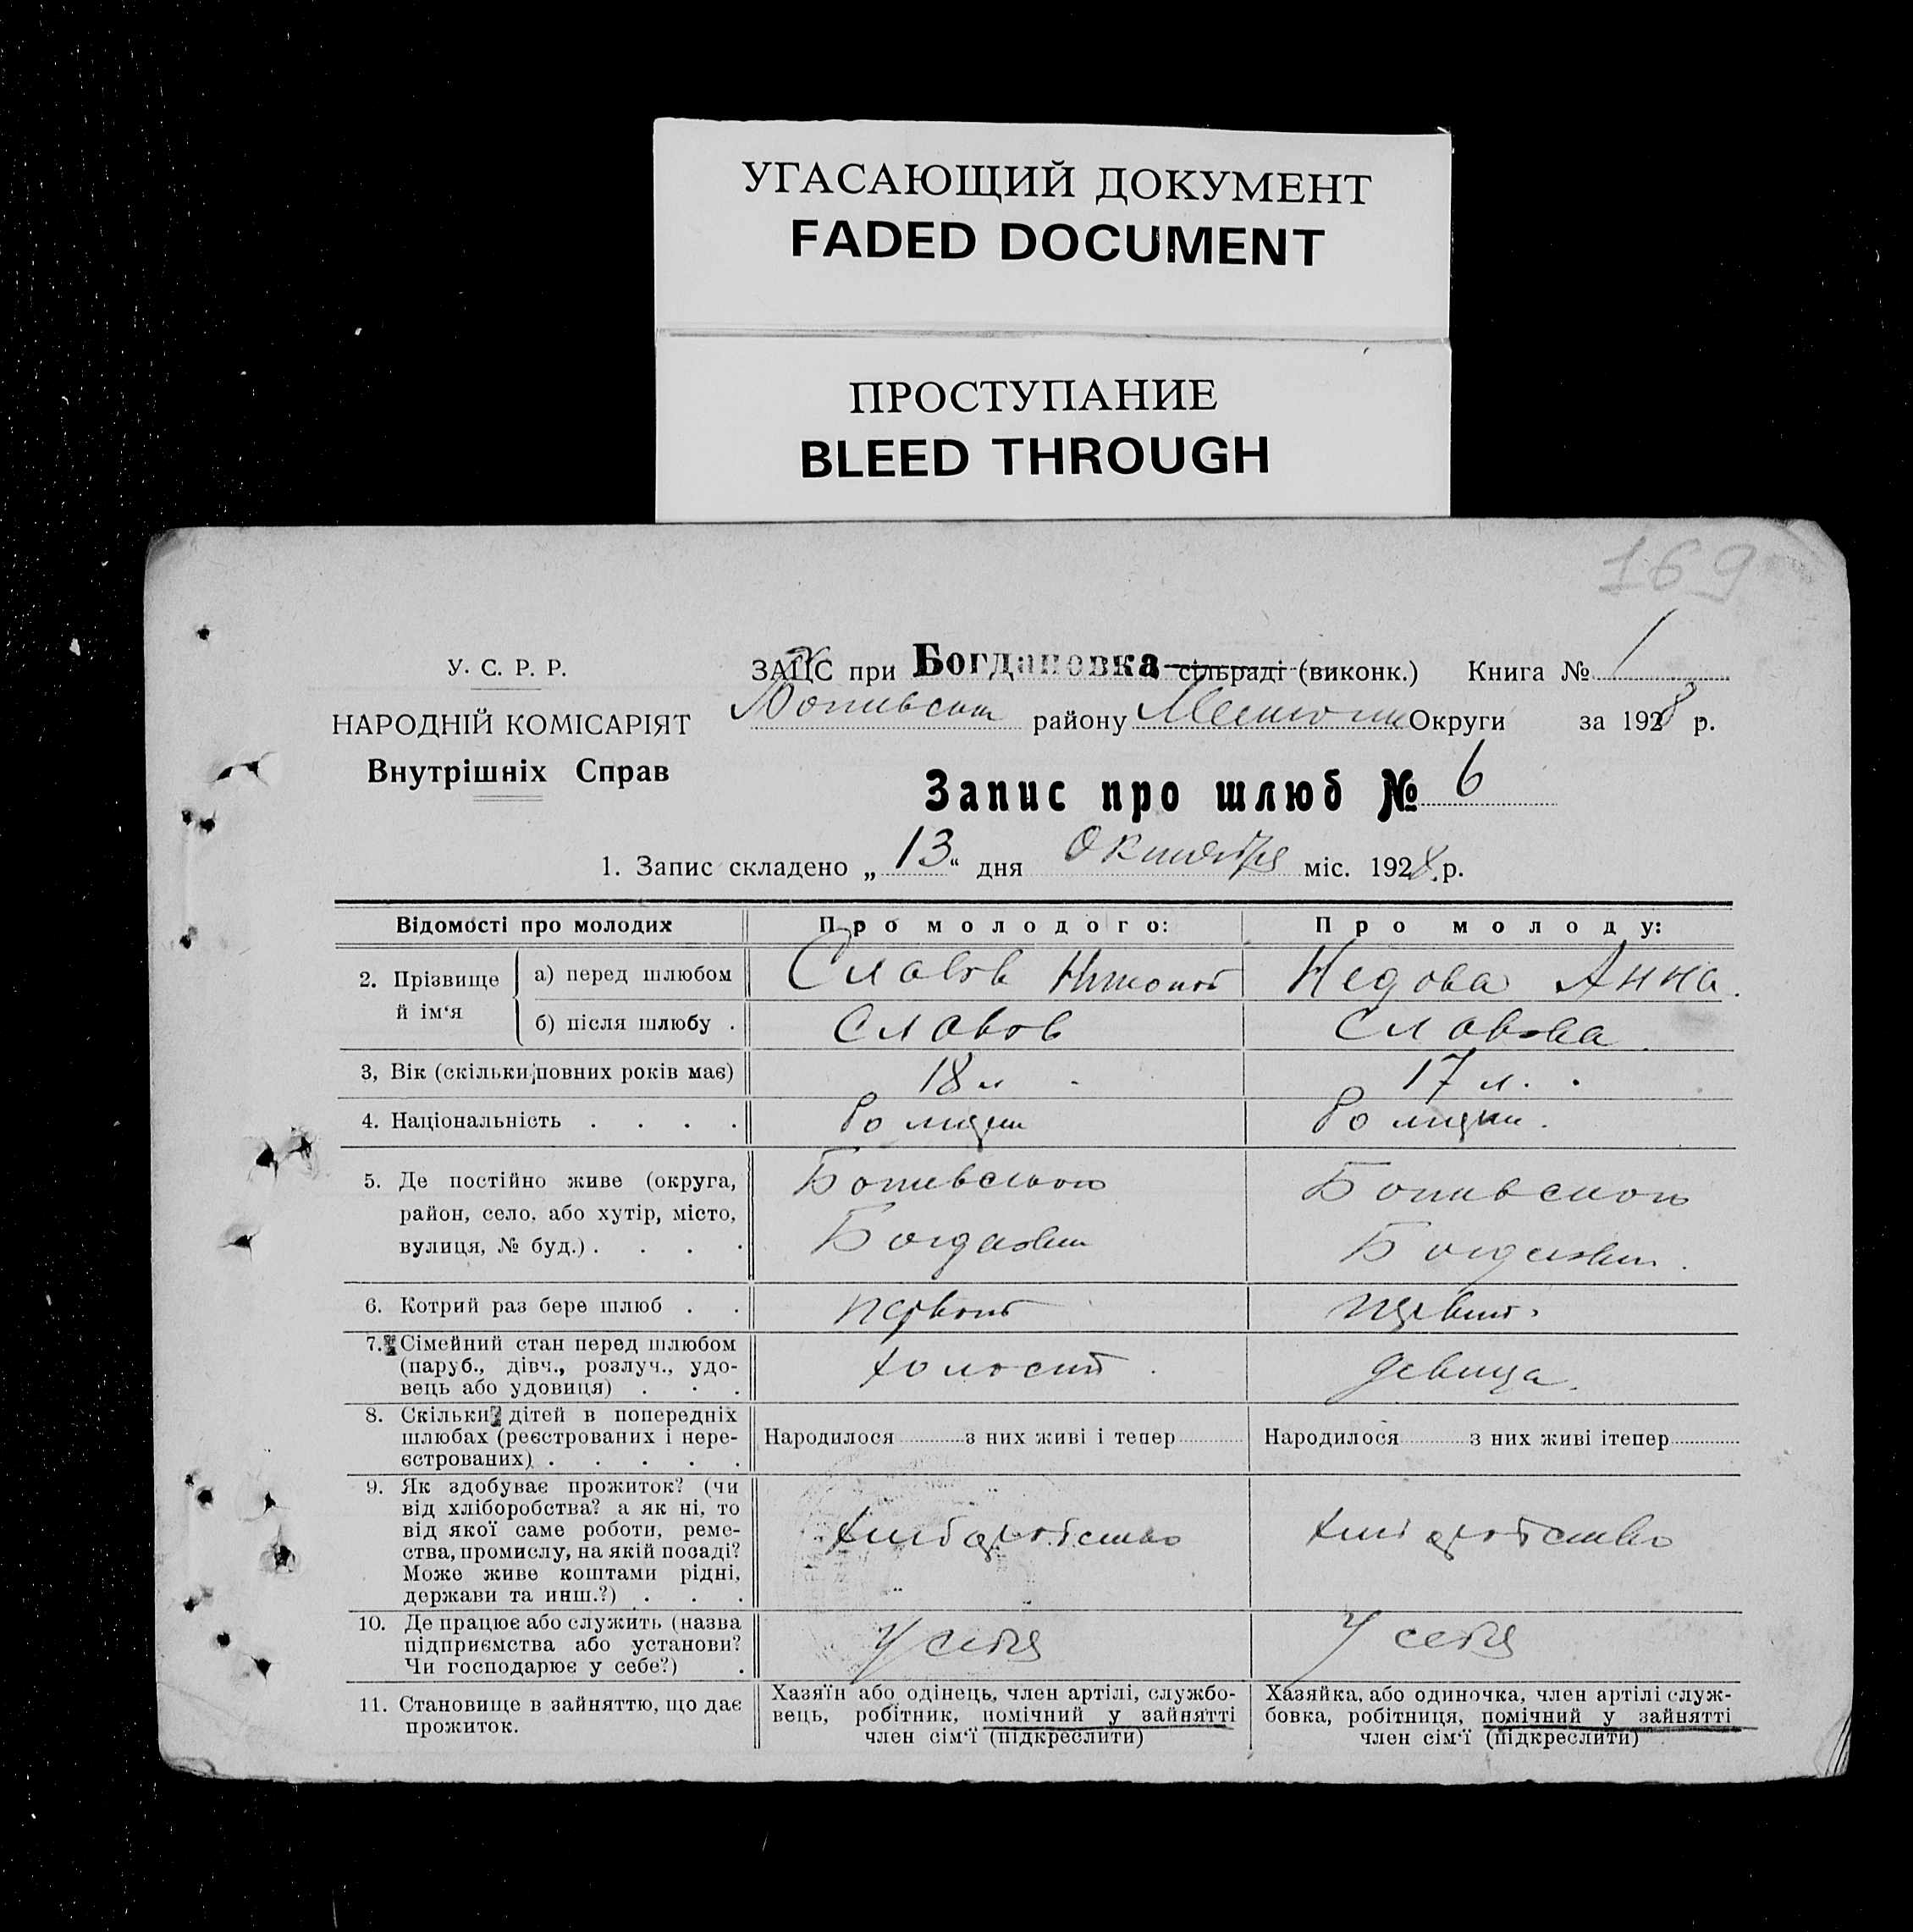 УГАСАЮЩИЙ ДОКУМЕНТ
FADED DOCUMENT
ПРОСТУПАНИЕ
BLEED THROUGH
169
У. С. Р. Р.
НАРОДНІЙ КОМІСАРІЯТ
Внутрішніх Справ
ЗАЦС при Богдановка сільраді (виконк.) Книга № 1
району Округи за 1928 р.
Запис про шлюб № 6
1. Запис складено „ 13 “ дня Октября міс. 1928 р.
Відомості про молодих
Про молодого:
Про молоду:
2. Прізвище й ім‘я
а) перед шлюбом
Славов
Недова Анна.
б) після шлюбу .
Славов
Славова.
3, Вік (скільки повних років має)
18 л
17 л.
4. Національність . . . .
5. Де постійно живе (округа,
район, село, або хутір, місто,
вулиця, № буд.) . . . .
Ботивского
Ботивского
6. Котрий раз бере шлюб . .
7. Сімейний стан перед шлюбом
(паруб., дівч., розлуч., удо-
вець або удовиця) . . .
холост
девица.
8. Скільки дітей в попередніх
шлюбах (реєстрованих і нере-
єстрованих) . . . . .
Народилося з них живі і тепер
Народилося з них живі ітепер
9. Як здобуває прожиток? (чи
від хліборобства? а як ні, то
від якої саме роботи, реме-
ства, промислу, на якій посаді?
Може живе коштами рідні,
держави та инш.?) . . .
хлібаробство
хлібаробство
10. Де працює або служить (назва
підприємства або установи?
Чи господарює у себе?) .
У себя
У себя
11. Становище в зайняттю, що дає
прожиток.
Хазяїн або одінець, член артілі, службо-
вець, робітник, помічний у зайнятті
член сім‘ї (підкреслити)
Хазяйка, або одиночка, член артілі служ-
бовка, робітниця, помічний у зайнятті
член сім‘ї (підкреслити)